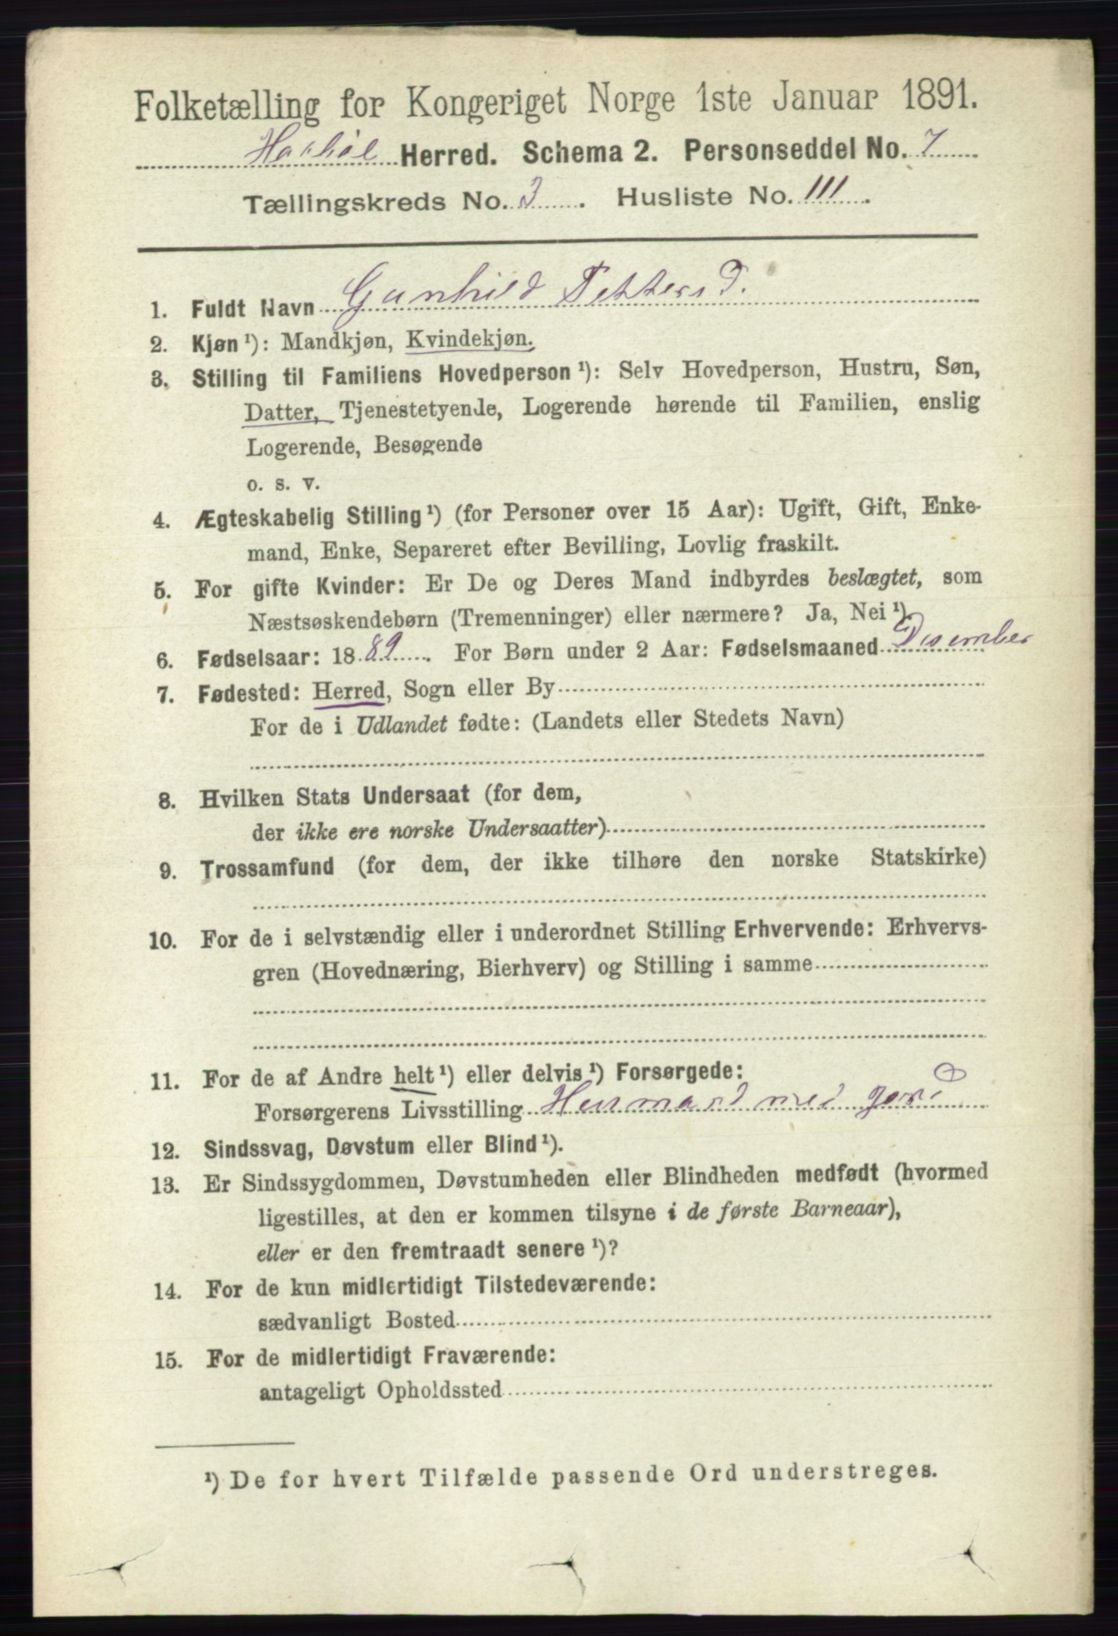 Folketælling for Kongeriget Norge 1ste Januar 1891.
Herred. Schema 2. Personseddel No. 7
Tællingskreds No. 3. Husliste No. 111.
1. Fuldt Navn Gunhild Petters D.
2. Kjøn ¹): Mandkjøn, Kvindekjøn.
3. Stilling til Familiens Hovedperson ¹): Selv Hovedperson, Hustru, Søn,
Datter, Tjenestetyende, Logerende hørende til Familien, enslig
Logerende, Besøgende
o. s. v.
4. Ægteskabelig Stilling ¹) (for Personer over 15 Aar): Ugift, Gift, Enke-
mand, Enke, Separeret efter Bevilling, Lovlig fraskilt.
5. For gifte Kvinder: Er De og Deres Mand indbyrdes beslægtet, som
Næstsøskendebørn (Tremenninger) eller nærmere? Ja, Nei ¹).
6. Fødselsaar: 1889. For Børn under 2 Aar: Fødselsmaaned Disember
7. Fødested: Herred, Sogn eller By
For de i Udlandet fødte: (Landets eller Stedets Navn)
8. Hvilken Stats Undersaat (for dem,
der ikke ere norske Undersaatter)
9. Trossamfund (for dem, der ikke tilhøre den norske Statskirke)
10. For de i selvstændig eller i underordnet Stilling Erhvervende: Erhvervs-
gren (Hovednæring, Bierhverv) og Stilling i samme
11. For de af Andre helt ¹) eller delvis ¹) Forsørgede:
Forsørgerens Livsstilling Husmand med jord
12. Sindssvag, Døvstum eller Blind ¹).
13. Er Sindssygdommen, Døvstumheden eller Blindheden medfødt (hvormed
ligestilles, at den er kommen tilsyne i de første Barneaar),
eller er den fremtraadt senere ¹)?
14. For de kun midlertidigt Tilstedeværende:
sædvanligt Bosted
15. For de midlertidigt Fraværende:
antageligt Opholdssted
¹) De for hvert Tilfælde passende Ord understreges.